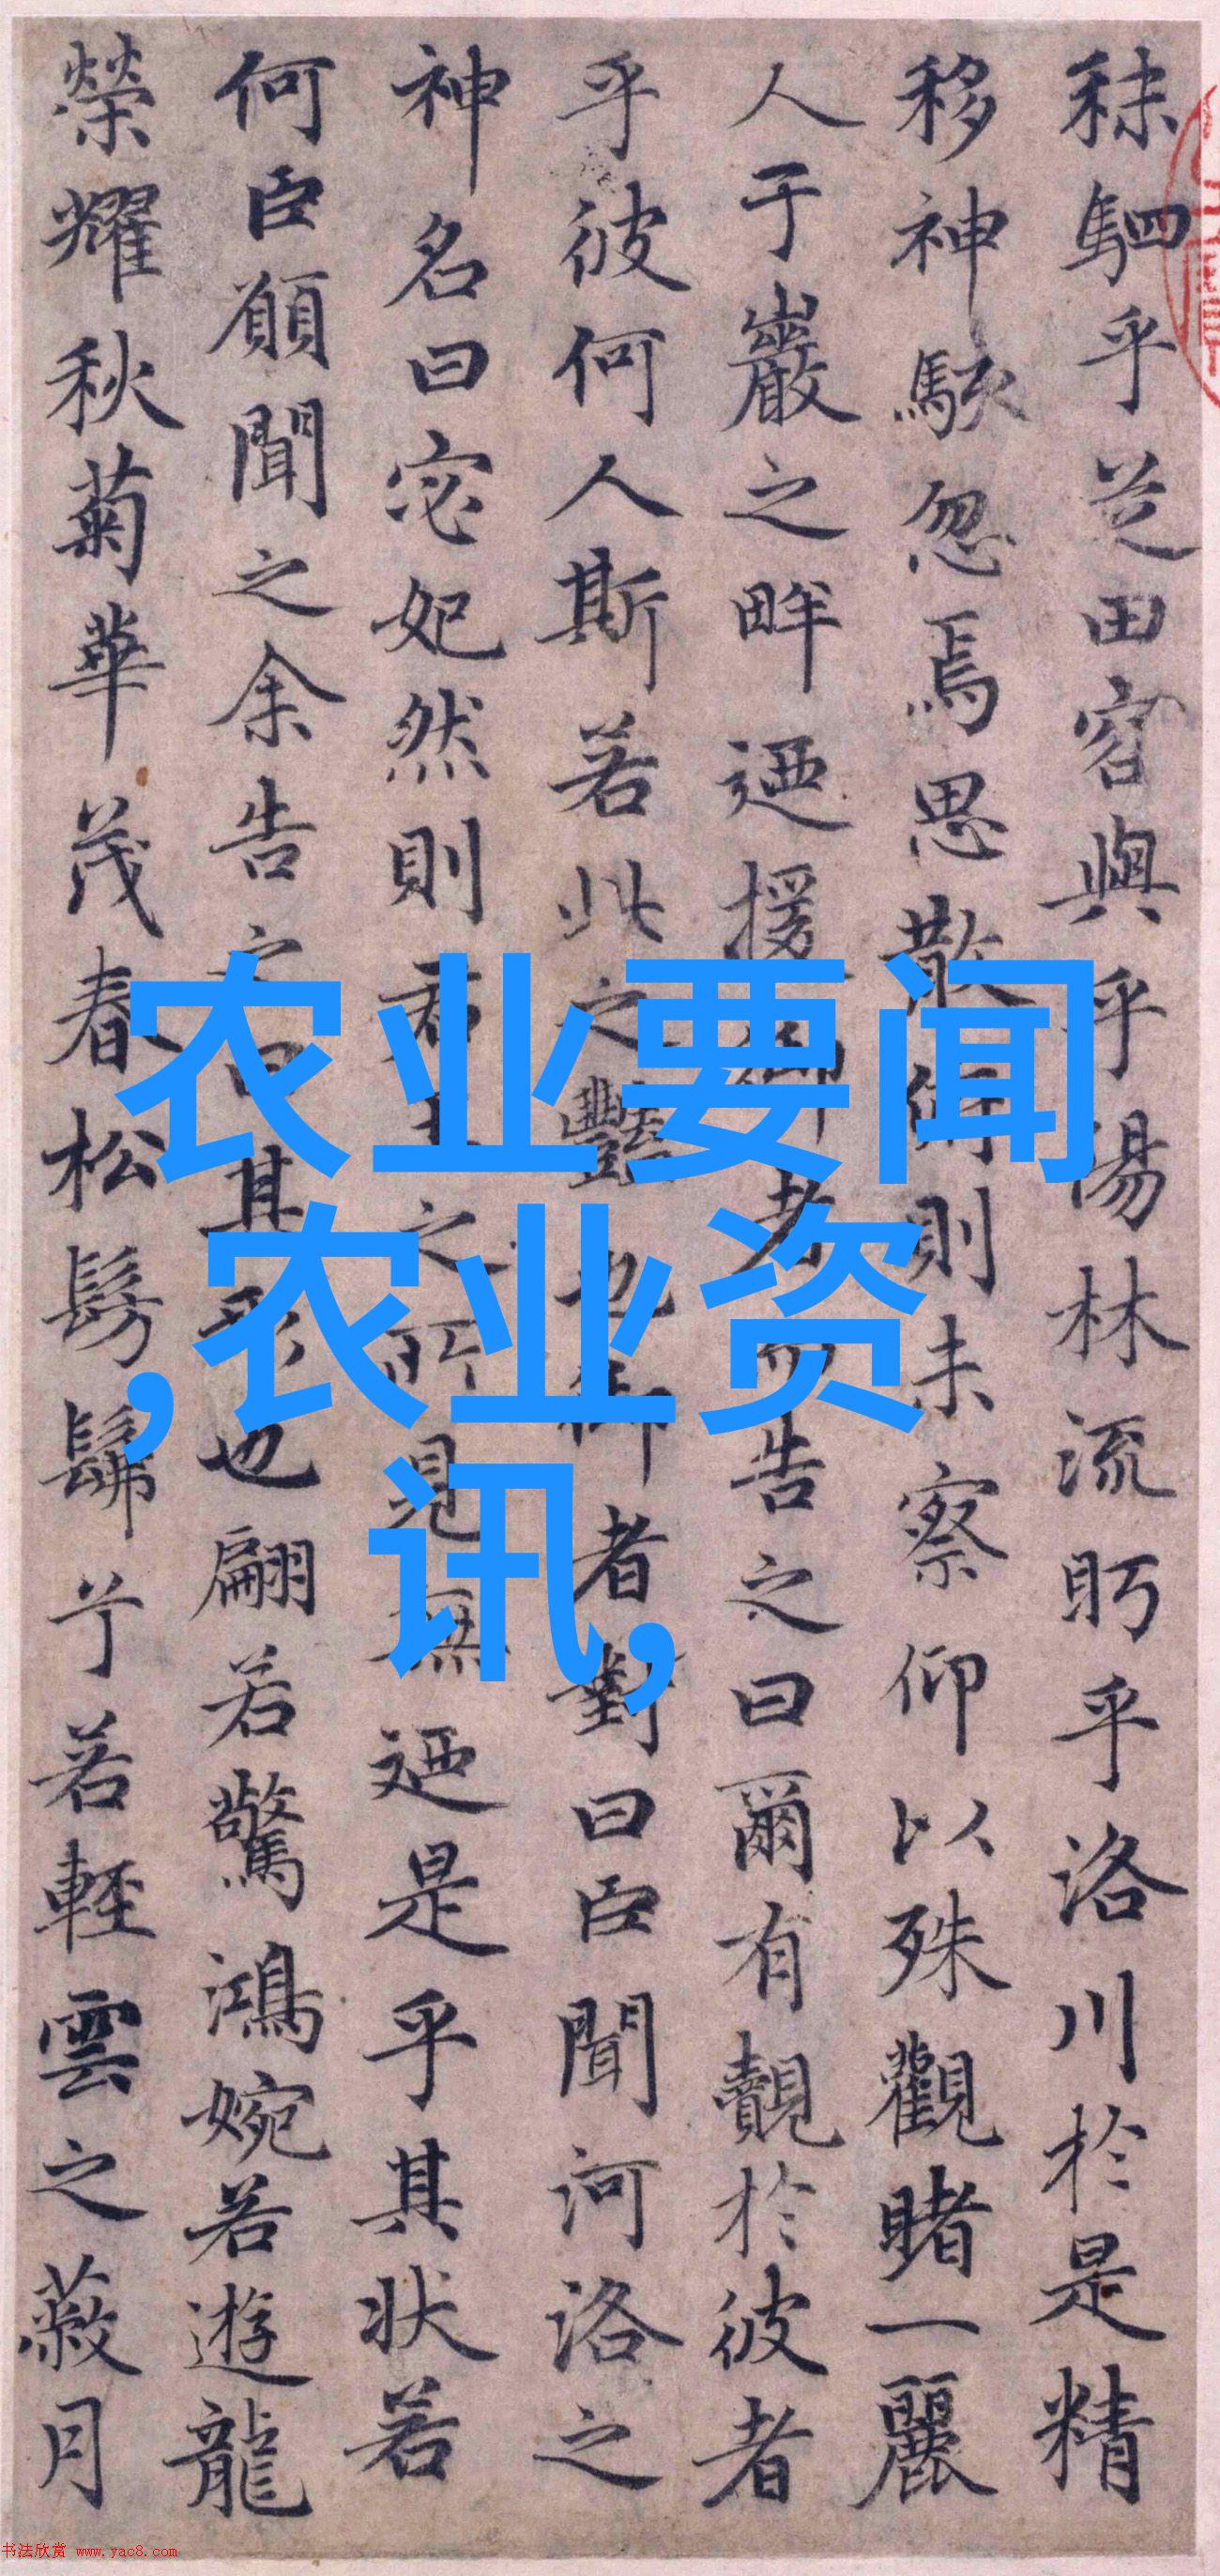 秣駟乎芝田容與乎陽林流眄乎洛川於是精
移神駭忽焉思散俯則未察仰以殊觀睹一麗
人于巖之畔迺援御者而告之曰爾有覿於彼者
乎彼何人斯若此之豔也御者對曰臣聞河洛之
神名曰宓妃然則君王之所見無迺是乎其狀若
何臣願聞之余告之曰其形也翩若驚鴻婉若遊龍
榮耀秋菊華茂春松髣髴兮若輕雲之蔽月
农业要闻
,农业资
讯,
书法欣赏 www.yac8.com